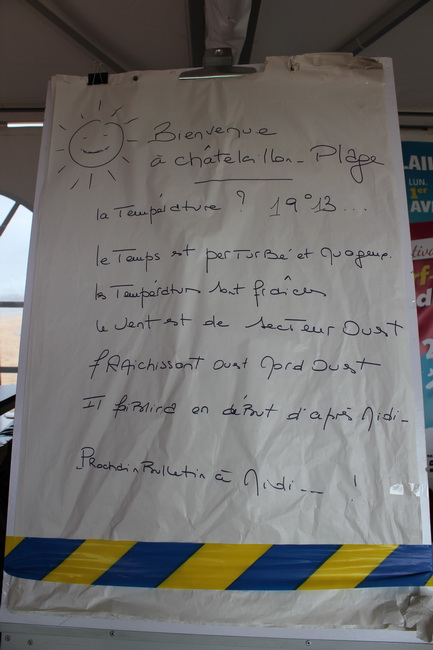 Bienvenue
à châtelaillon - Plage
la Température ? 19°13...
le Temps est perturbé et nuageux.
les Températures sont fraîches
le vent est de secteur Ouest
fraichissant ouest Nord Ouest
Il faiblira en début d'après Midi -
Prochain Bulletin à Midi -- !
LAI
LUN.
1er
AV